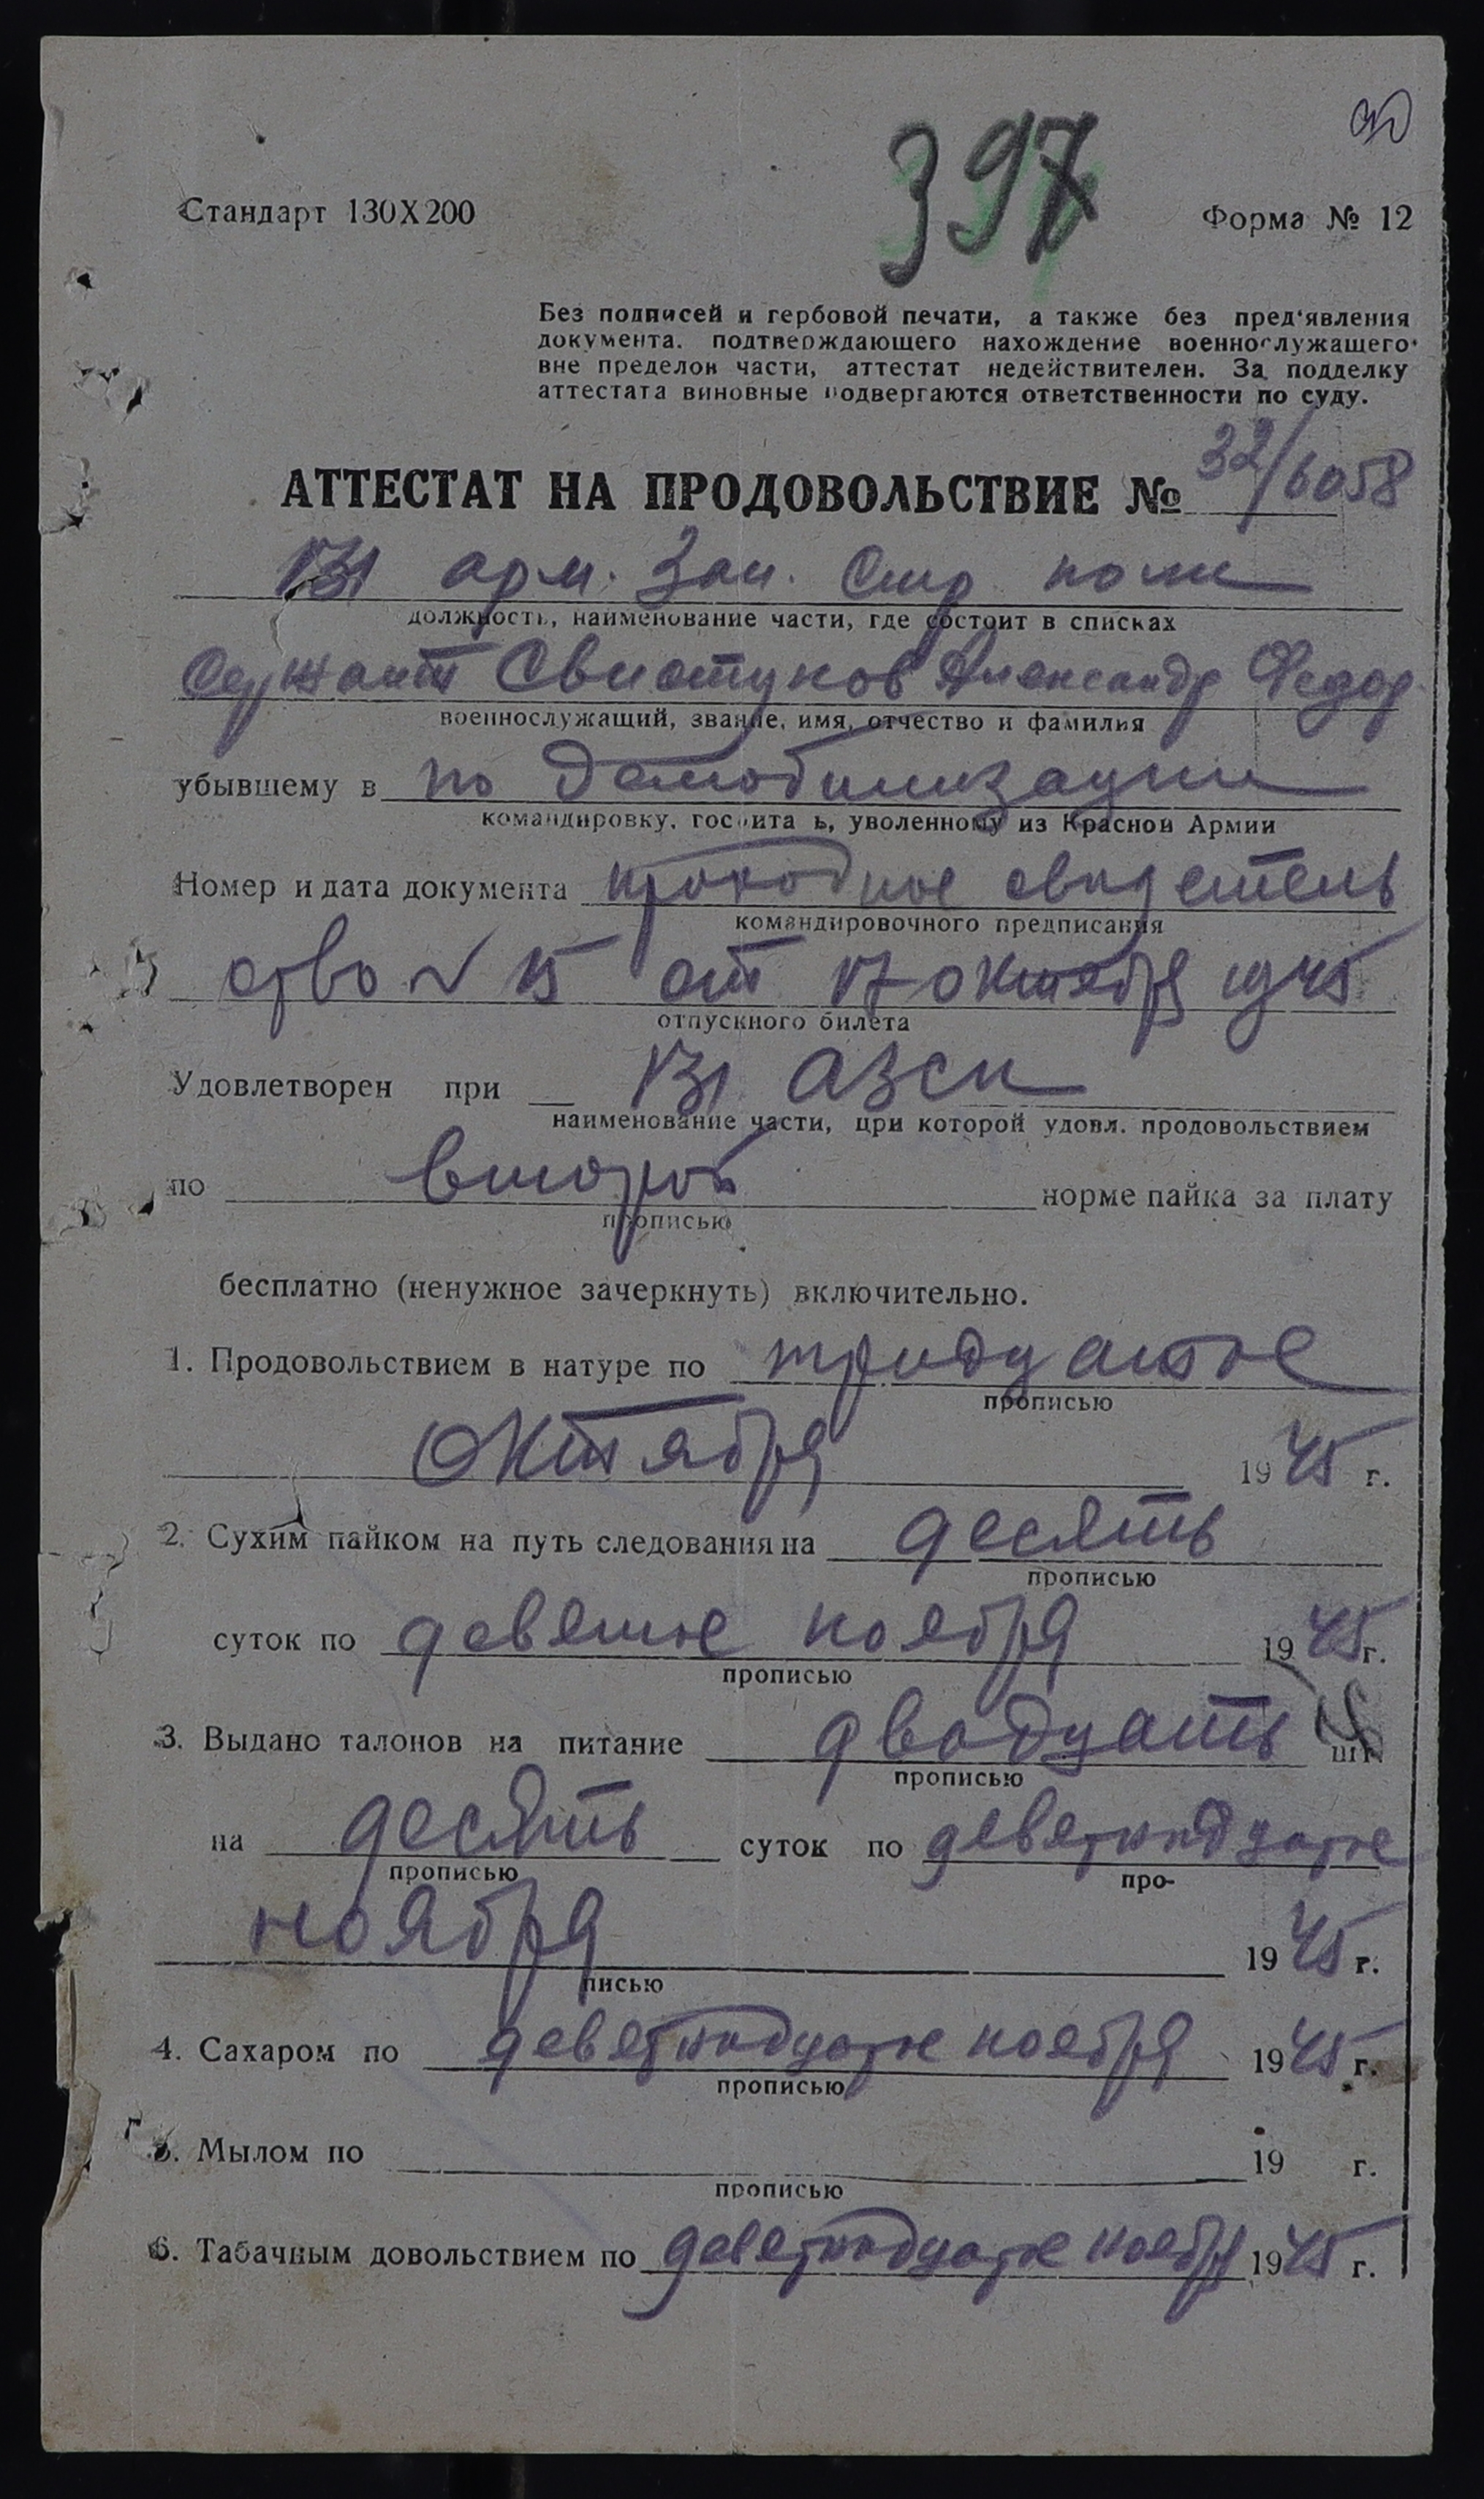 30
397
Стандарт 130Х200
Форма № 12
Без подписей и гербовой печати, а также без пред'явления
документа, подтверждающего нахождение военнослужащего
вне пределов части, аттестат недействителен. За подделку
аттестата виновные подвергаются ответственности по суду.
АТТЕСТАТ НА ПРОДОВОЛЬСТВИЕ № 32/6058
131 арм. Зап. Стр полк
должность, наименование части, где состоит в списках
Сержант Свистунов Александр Федор
военнослужащий, звание, имя, отчество и фамилия
убывшему в по демобилизации
командировку, госпиталь, уволенному из Красной Армии
Номер и дата документа проходное свидетель
командировочного предписания
ство № 15 от 17 октября 1945
отпускного билета
Удовлетворен при 131 АЗСП
наименование части, при которой удовл. продовольствием
по второй норме пайка за плату
прописью
бесплатно (ненужное зачеркнуть) включительно.
1. Продовольствием в натуре по тридцатое
прописью
октября 1945 г.
2. Сухим пайком на путь следования на десять
прописью
суток по девятое ноября 1945 г.
прописью
3. Выдано талонов на питание двадцать шт.
прописью
на десять суток по девятнадцатое
прописью про-
ноября 1945 г.
писью
4. Сахаром по девятнадцатое ноября 1945 г.
прописью
5. Мылом по 19 г.
прописью
6. Табачным довольствием по девятнадцатое ноября 1945 г.